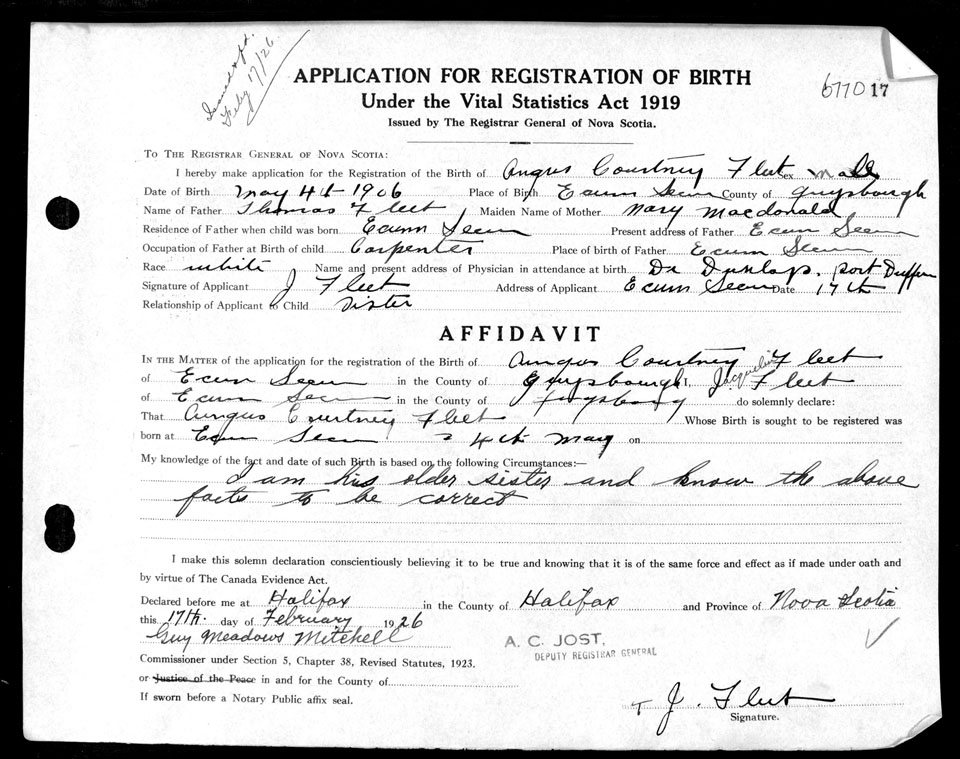 Issued & pd.
Feby 17/26
APPLICATION FOR REGISTRATION OF BIRTH
6770 17
Under the Vital Statistics Act 1919
Issued by The Registrar General of Nova Scotia.
TO THE REGISTRAR GENERAL OF NOVA SCOTIA:
I hereby make application for the Registration of the Birth of Angus Courtney Fleet Sex male
Date of Birth May 4th 1906 Place of Birth Ecum Secum County of Guysbough
Name of Father Thomas Fleet Maiden Name of Mother Mary Macdonald
Residence of Father when child was born Ecum Secum Present address of Father Ecum Secum
Occupation of Father at Birth of child Carpenter Place of birth of Father Ecum Secum
Race white Name and present address of Physician in attendance at birth Dr Dunlap, Port Dufferin
Signature of Applicant J Fleet Address of Applicant Ecum Secum Date 17th
Relationship of Applicant to Child Sister
AFFIDAVIT
IN THE MATTER of the application for the registration of the Birth of Angus Courtney Fleet
of Ecum Secum in the County of Guysbough I, Jacqueline Fleet
of Ecum Secum in the County of do solemnly declare:
That Angus Courtney Fleet Whose Birth is sought to be registered was
born at Ecum Secum 4th May on
My knowledge of the fact and date of such Birth is based on the following Circumstances:—
I am his older sister and know the above
facts to be correct
I make this solemn declaration conscientiously believing it to be true and knowing that it is of the same force and effect as if made under oath and
by virtue of The Canada Evidence Act.
Declared before me at Halifax in the County of Halifax and Province of Nova Scotia
this 17th. day of February 1926
Guy Meadows Mitchell
A. C. JOST,
DEPUTY REGISTRAR GENERAL
Commissioner under Section 5, Chapter 38, Revised Statutes, 1923.
or Justice of the Peace in and for the County of
If sworn before a Notary Public affix seal.
J. Fleet
Signature.